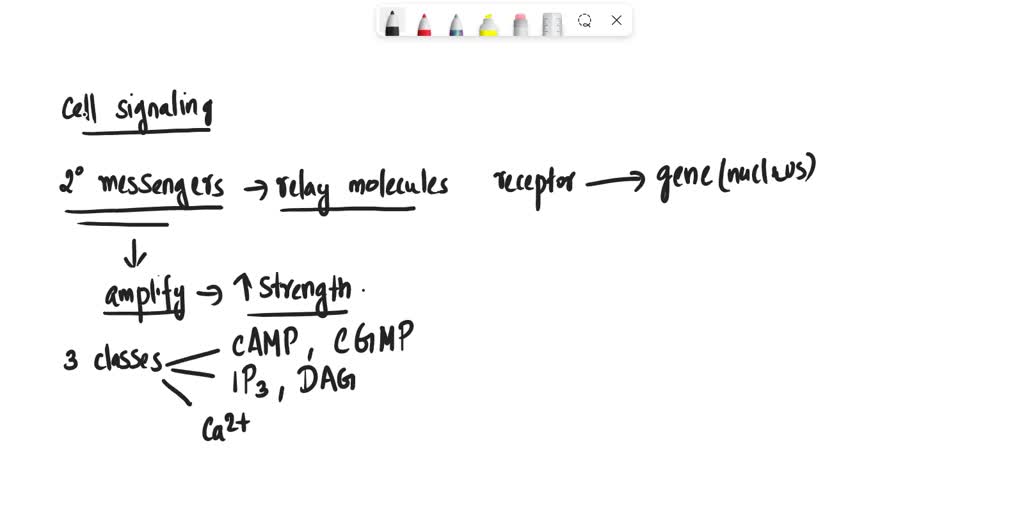 Cell signaling
2° messengers → relay molecules receptor → gene (nucleus)
↓
amplify → ↑ strength.
3 classes cAMP, CGMP
IP3, DAG
Ca2+